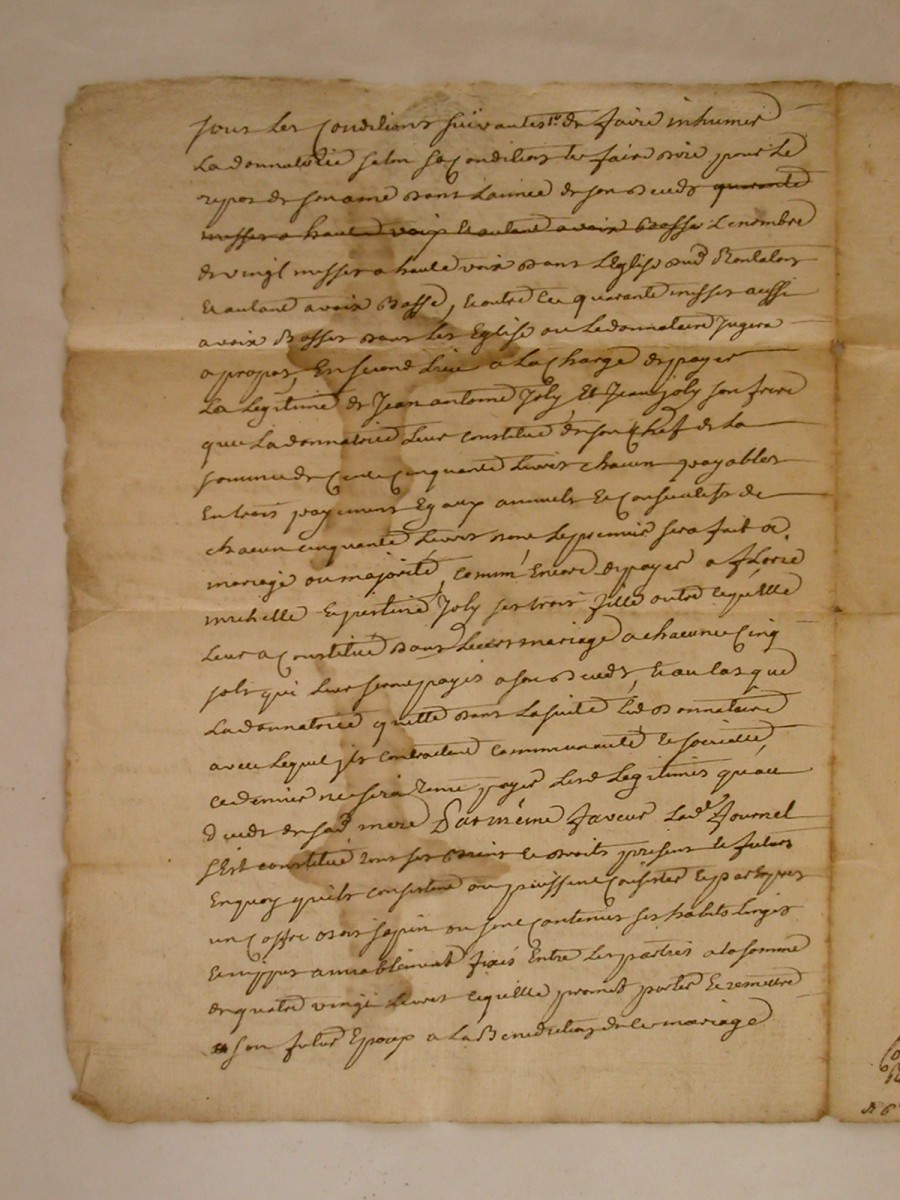 sous Les Conditions suivantes 1º de faire inhumer
La donnatrice selon sa Condition et faire dire pour Le
repos de son ame dans L'année de son deceds quarante
messes a haute voix et autant a voix Basse Le nombre
de vingt messes a haute voix dans L'Eglise dud
et autant a voix Basse, et outre ce quarante messes aussi
a voix Basses dans Les Eglise ou Le donnataire Jugera
a propos, En second Lieu a La Charge de payer
La Legitime de Jean antoine Joly Et Jean joly son frere
que La donnatrice Leur constitue de son Chef de La
somme de Cent Cinquante Livres chacun payables
En trois payements Egaux annuels et Consecutifs de
chacun cinquante Livres dont Le premier sera fait a
mariage ou majorité, comm' Encore de payer a
michelle Joly ses trois fille outre ce qu'elle
Leur a Constitué dans Leurs mariage a chacune Cinq
sols qui Leur seront payés a son deceds, et au Cas que
La donnatrice quitte dans La suite Led donnataire
avec Lequel jls contractent Communauté et societté,
ce dernier ne sera tenu payer Lesd Legitimes qu'au
deceds de sad mere Par même faveur Lad.e Fournel
s'Est constitué tous ses Biens et droits present et futurs
En quoy qu'ils consistent ou puissent Consister et par Expres
un Coffre bois sapin ou sont Contenus ses habits Linges
et nippes amiablement fixés Entre Les parties a la somme
de quatre vingt Livres ce qu'elle promet porter et remettre
a son futur Epoux a La Benediction de ce mariage